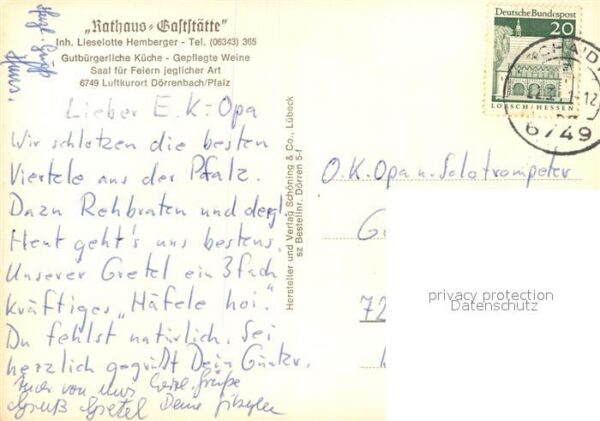 „Rathaus-Gaststätte"
Inh. Lieselotte Hemberger - Tel. (06343) 365
Gutbürgerliche Küche - Gepflegte Weine
Saal für Feiern jeglicher Art
6749 Luftkurort Dörrenbach/Pfalz
Herzl. Gruß
Lieber E.K.=Opa
Wir schlotzen die besten
Viertele aus der Pfalz.
Dazu Rehbraten und dergl.
Heut geht's uns bestens.
Unserer Gretel ein 3fach
kräftiges „Häfele hoi."
Du fehlst natürlich. Sei
herzlich gegrüßt Dein Günter.
von uns herzl. Grüße
Gruß Gretel Deine
Hersteller und Verlag Schöning & Co., Lübeck
sz Bestellnr. Dörren 5-f
Deutsche Bundespost
20
LORSCH/HESSEN
6749
O.K. Opa u. Solotrompeter
72
privacy protection
Datenschutz